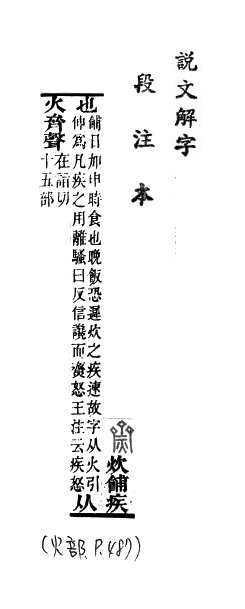 說文解字
段注本
齌炊餔疾
也
餔日加申時食也晚飯恐遲炊之疾速故字从火引
伸爲凡疾之用離騷曰反信讒而齌怒王注云疾怒
从
火齊聲
在詣切
十五部
(火部.P.487)